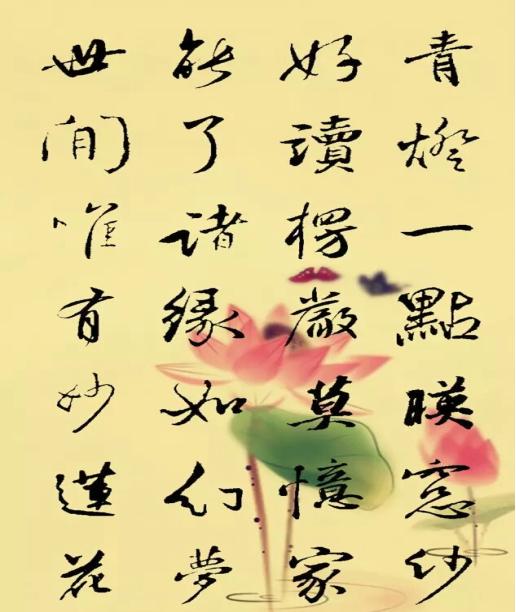 青燈一點暎窓紗
好讀楞嚴莫憶家
能了諸緣如幻夢
世間唯有妙蓮花